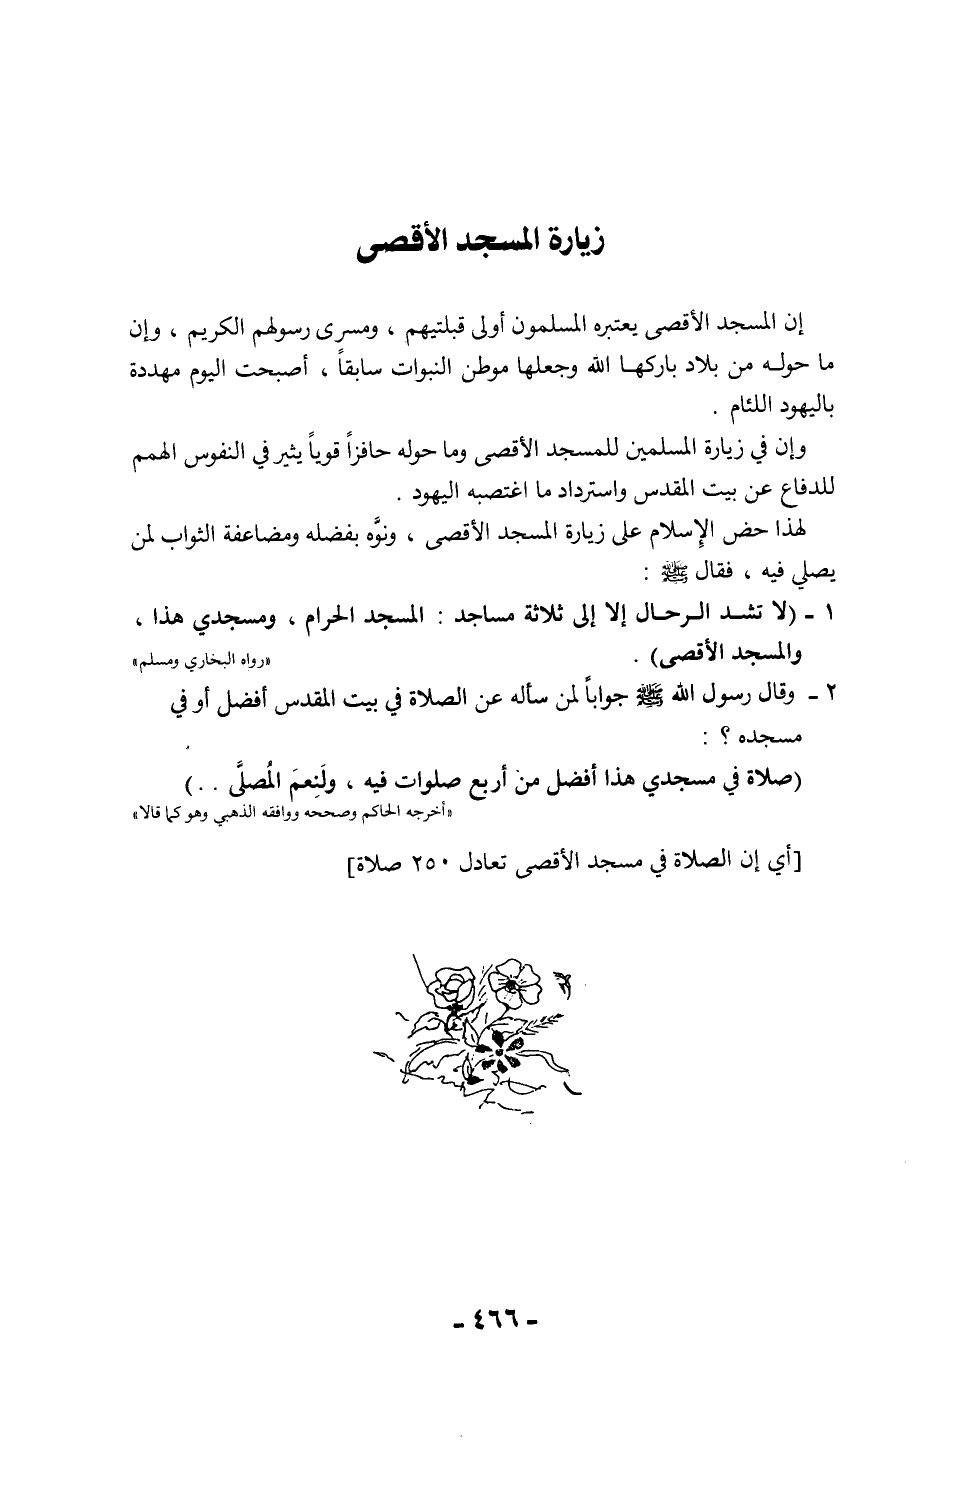 زيارة المسجد الأقصى
إن المسجد الأقصى يعتبره المسلمون أولى قبلتيهم ، ومسرى رسولهم الكريم ، وإن
ما حوله من بلاد باركها الله وجعلها موطن النبوات سابقاً ، أصبحت اليوم مهددة
باليهود اللئام .
وإن في زيارة المسلمين للمسجد الأقصى وما حوله حافزاً قوياً يثير في النفوس الهمم
للدفاع عن بيت المقدس واسترداد ما اغتصبه اليهود .
لهذا حض الإسلام على زيارة المسجد الأقصى ، ونوَّه بفضله ومضاعفة الثواب لمن
يصلي فيه ، فقال ﷺ :
١ - (لا تشد الرحال إلا إلى ثلاثة مساجد : المسجد الحرام ، ومسجدي هذا ،
والمسجد الأقصى) . «رواه البخاري ومسلم»
٢ - وقال رسول الله ﷺ جواباً لمن سأله عن الصلاة في بيت المقدس أفضل أو في
مسجده ؟ :
(صلاة في مسجدي هذا أفضل من أربع صلوات فيه ، ولَنِعمَ المُصلَّى . .)
«أخرجه الحاكم وصححه ووافقه الذهبي وهو كما قالا»
[أي إن الصلاة في مسجد الأقصى تعادل ٢٥٠ صلاة]
- ٤٦٦ -